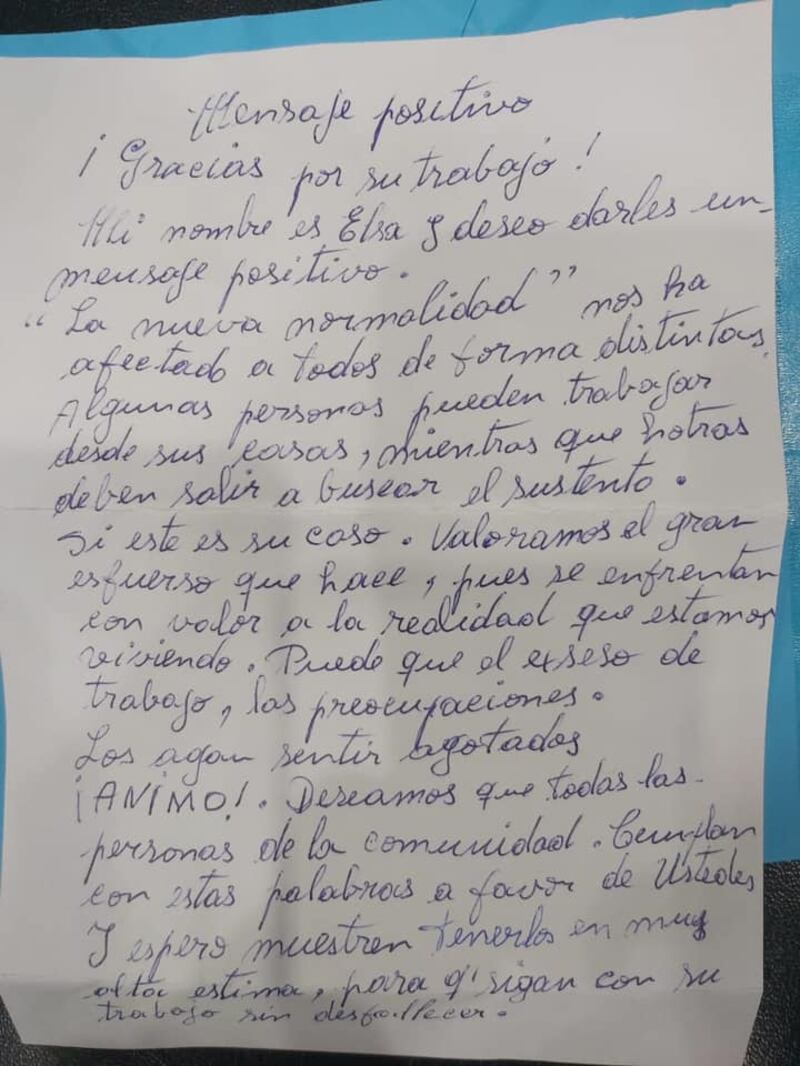 Mensaje positivo
¡Gracias por su trabajo!
Mi nombre es Elsa y deseo darles un
mensaje positivo.
"La nueva normalidad" nos ha
afectado a todos de forma distintas.
Algunas personas pueden trabajar
desde sus casas, mientras que hotras
deben salir a buscar el sustento.
Si este es su caso. Valoramos el gran
esfuerso que hace, pues se enfrentan
con valor a la realidad que estamos
viviendo. Puede que el exseso de
trabajo, las preocupaciones.
Los agan sentir agotados
¡ANIMO!. Deseamos que todas las
personas de la comunidad. Cumplan
con estas palabras a favor de Ustedes
Y espero muestren tenerlos en muy
alta estima, para q' sigan con su
trabajo sin desfallecer.